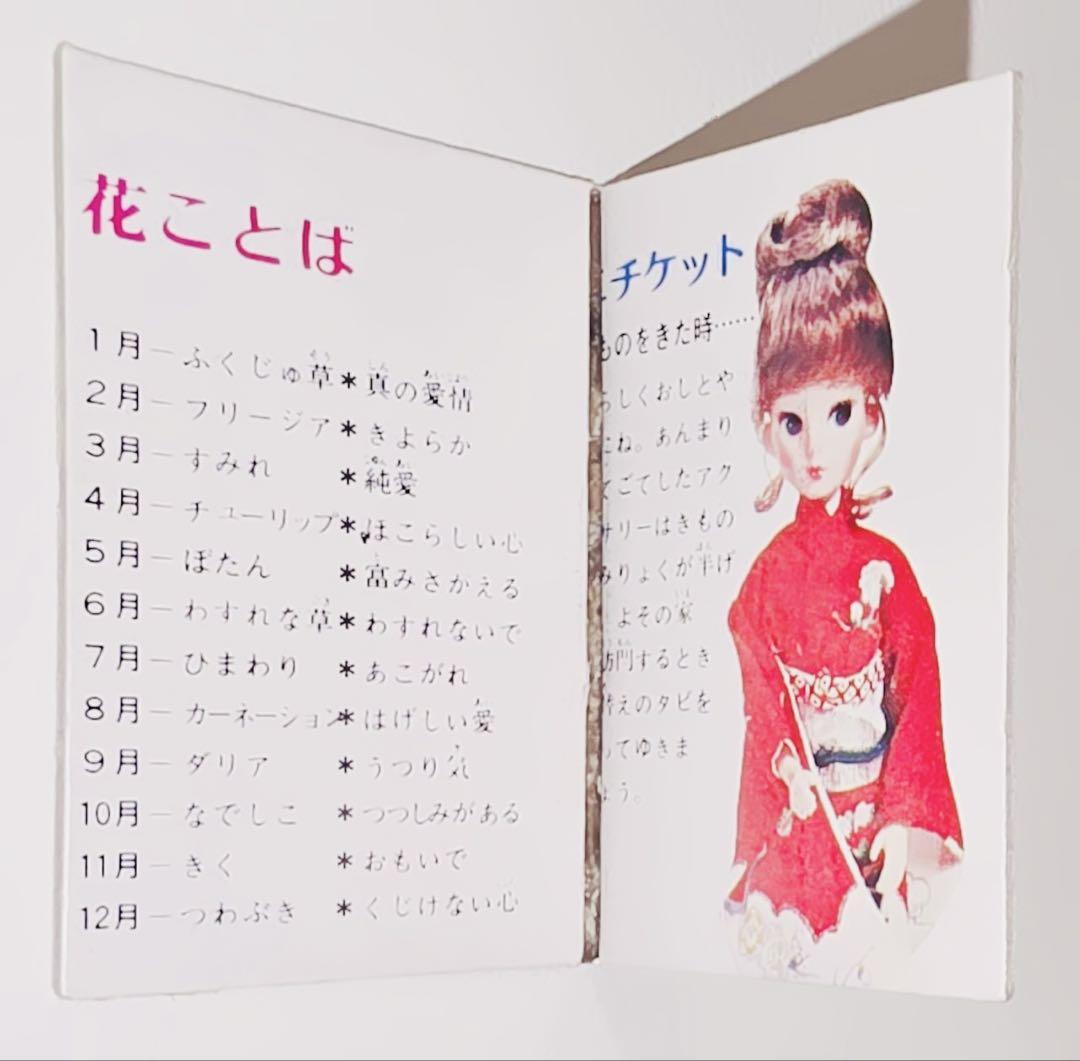 花ことば
1月―ふくじゅ草*真の愛情
2月―フリージア*きよらか
3月―すみれ*純愛
4月―チューリップ*ほこらしい心
5月―ぼたん*富みさかえる
6月―わすれな草*わすれないで
7月―ひまわり*あこがれ
8月―カーネーション*はげしい愛
9月―ダリア*うつり気
10月―なでしこ*つつしみがある
11月―きく*おもいで
12月―つわぶき*くじけない心
チケット
ものをきた時……
らしくおしとや
にね。あんまり
てごてしたアク
サリーはきもの
みりょくが半げ
よその家
訪門するとき
替えのタビを
ってゆきま
ょう。